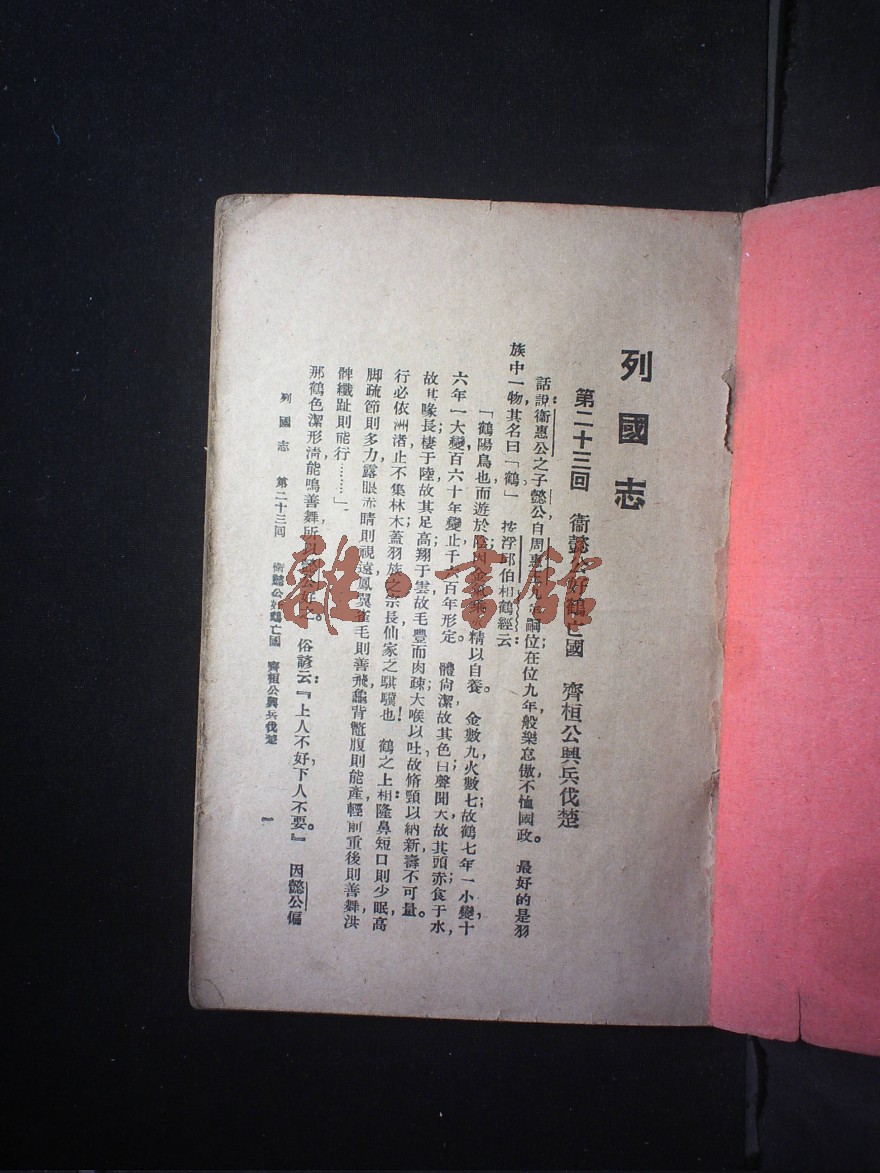 列國志
第二十三回　衞懿公好鶴亡國　齊桓公興兵伐楚
話說：衞惠公之子懿公，自周惠王九年嗣位；在位九年，般樂怠傲，不恤國政。最好的是羽
族中一物，其名曰「鶴。」按浮邱伯相鶴經云：
「鶴，陽鳥也，而遊於陰；因金氣乘火精以自養。金數九，火數七；故鶴七年一小變，十
六年一大變，百六十年變止，千六百年形定。體尚潔，故其色白；聲聞天，故其頭赤；食于水，
故其喙長；棲于陸，故其足高；翔于雲，故毛豐而肉疎；大喉以吐故，脩頸以納新，壽不可量。
行必依洲渚，止不集林木；蓋羽族之宗長，仙家之騏驥也！鶴之上相：隆鼻短口則少眠，高
脚疏節則多力，露眼赤睛則視遠，鳳翼雀毛則善飛，龜背鼈腹則能產，輕前重後則善舞，洪
髀纖趾則能行………」
那鶴色潔形淸，能鳴善舞，所以懿公好之。俗諺云：『上人不好，下人不要。』因懿公偏
列國志　第二十三回　衞懿公好鶴亡國　齊桓公興兵伐楚
一
雜·書館